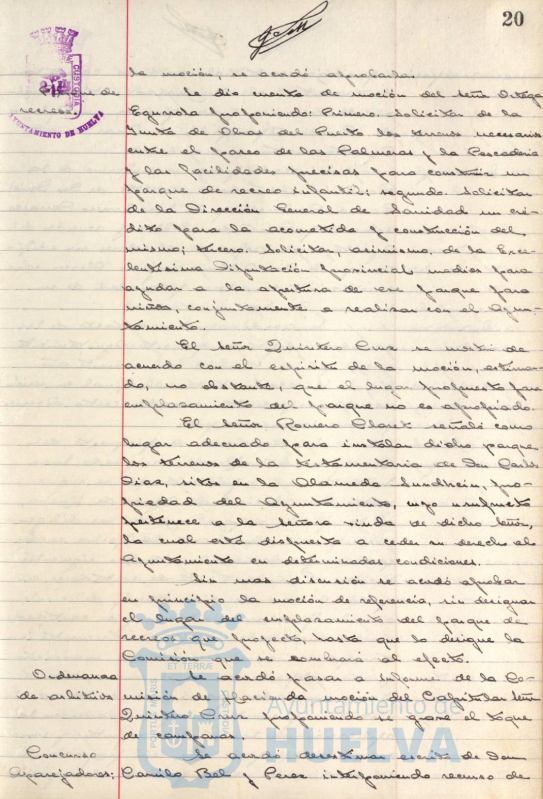 20
CUSTODIA
AYUNTAMIENTO DE HUELVA
la moción, se acordó aprobarla.
que de Se dio cuenta de moción del señor Ortega
recreo. Egurrola proponiendo: Primero. Solicitar de la
Junta de Obras del Puerto los terrenos necesarios
entre el paseo de las Palmeras y la Pescadería
y las facilidades precisas para construir un
parque de recreo infantil; segundo. Solicitar
de la Dirección General de Sanidad un cré-
dito para la acometida y construcción del
mismo; tercero. Solicitar, asimismo, de la Exce-
lentísima Diputación provincial medios para
ayudar a la apertura de ese parque para
niños, conjuntamente a realizar con el Ayun-
tamiento.
El señor Quintero Cruz se mostró de
acuerdo con el espíritu de la moción, estiman-
do, no obstante, que el lugar propuesto para
emplazamiento del parque no es apropiado.
El señor Romero Claret señaló como
lugar adecuado para instalar dicho parque
los terrenos de la testamentaria de Don Carlos
Díaz, sitos en la Alameda Sundheim, pro-
piedad del Ayuntamiento, cuyo usufructo
pertenece a la señora viuda de dicho señor,
la cual está dispuesta a ceder su derecho al
Ayuntamiento en determinadas condiciones.
Sin mas discusión se acordó aprobar
en principio la moción de referencia, sin designar
el lugar del emplazamiento del parque de
recreos que proyecta, hasta que lo designe la
Comisión que se nombrará al efecto.
Ordenanza Se acordó pasar a informe de la Co-
de arbitrios misión de Hacienda moción del Capitular señor
Quintero Cruz proponiendo se grave el toque
de campanas.
Concurso Se acordó desestimar escrito de Don
Aparejadores: Camilo Bel y Perez interponiendo recurso de
Ayuntamiento de
HUELVA